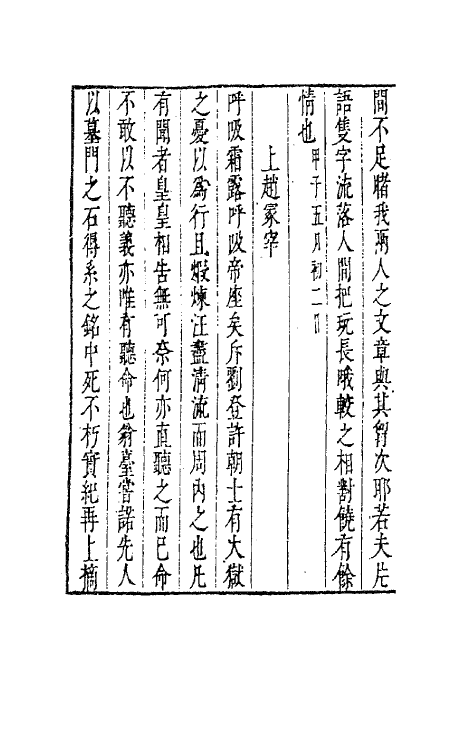 間不足賭我兩人之文章與其胷次耶若夫片
語隻字流落人間把玩長哦較之相對饒有餘
情也甲子五月初二日
上趙冢宰
呼吸霜露呼吸帝座矣斥劉登許朝士有大獄
之憂以為行且煆煉汪盡清流而周內之也凡
有聞者皇皇相告無可奈何亦直聽之而已命
不敢以不聽義亦唯有聽命也翁臺嘗諾先人
以墓門之石得系之銘中死不朽實紀再上摘